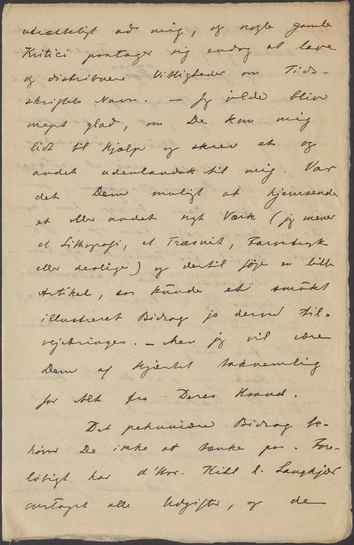 udtrykkeligt mig, og nogle gamle
Kritici paatager sig endog at lave
og distribuere Vittigheder om Tids-
skriftets Navn. — Jeg vilde blive
meget glad, om De kun mig
lidt til Hjælp og skrev et og
andet udenlandsk til mig. Var
det Dem muligt at hjemsende
et eller andet nyt Værk (jeg mener
et Lithografi, et Træsnit, Farvetryk
eller deslige) og dertil føje en lille
Artikel, saa kunde et smukt
illustreret Bidrag jo derved til-
vejebringes. — Men jeg vil være
Dem af Hjertet taknemlig
for Alt fra Deres Haand.
Det pekuniære Bidrag be-
høver De ikke at tænke paa. Fore-
løbigt har d'Hrr. Kihl & Langkjær
overtaget alle Udgifter, og de